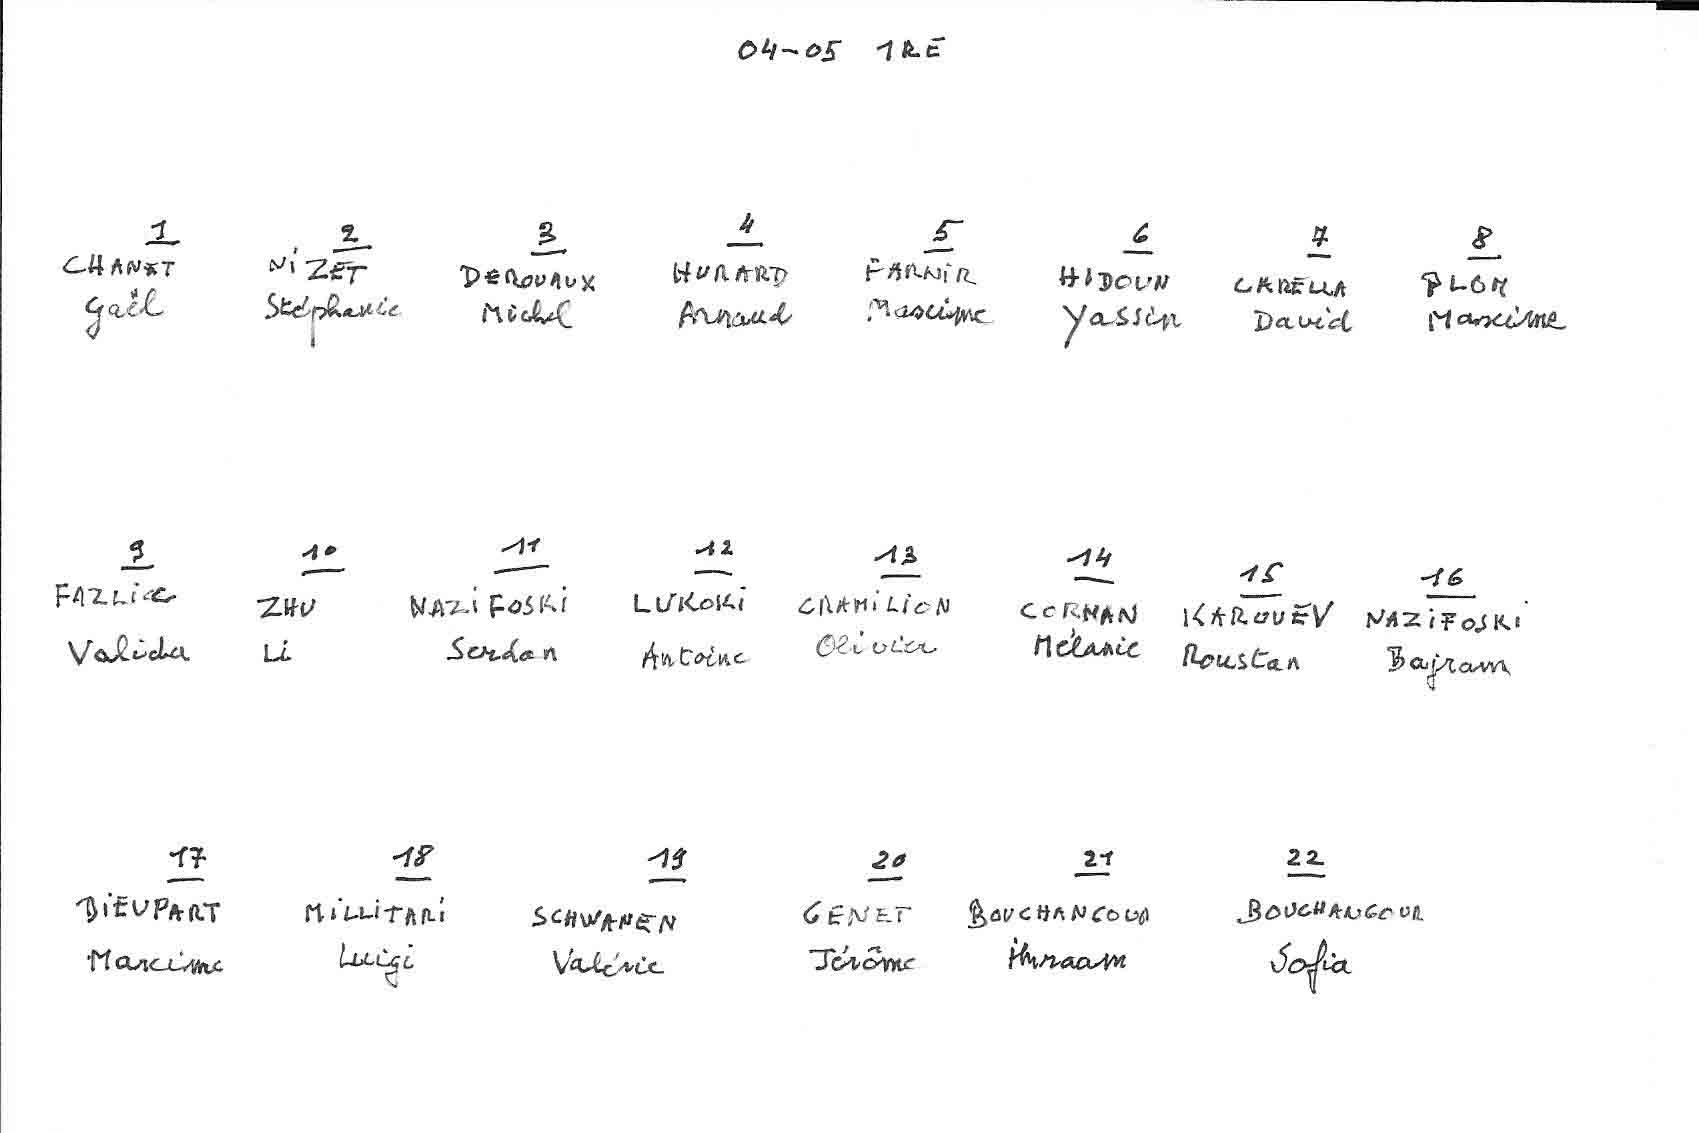 04-05 1RE
1 2 3 4 5 6 7 8
CHANET NiZET DEROUAUX HURARD FARNiR HIDOUN CARELLA PLOM
Gaël Stéphanie Michel Arnaud Maxime Yassin David Maxime
9 10 11 12 13 14 15 16
FAZLiC ZHU NAZiFOSKi LUKOKi CRAMiLiON CORMAN KAROUEV NAZiFOSKi
Valida Li Serdan Antoine Olivier Mélanie Roustan Bajram
17 18 19 20 21 22
DiEUPART MiLLiTARi SCHWANEN GENET BOUCHANGOUR BOUCHANGOUR
Maxime Luigi Valérie Jérôme Sofia